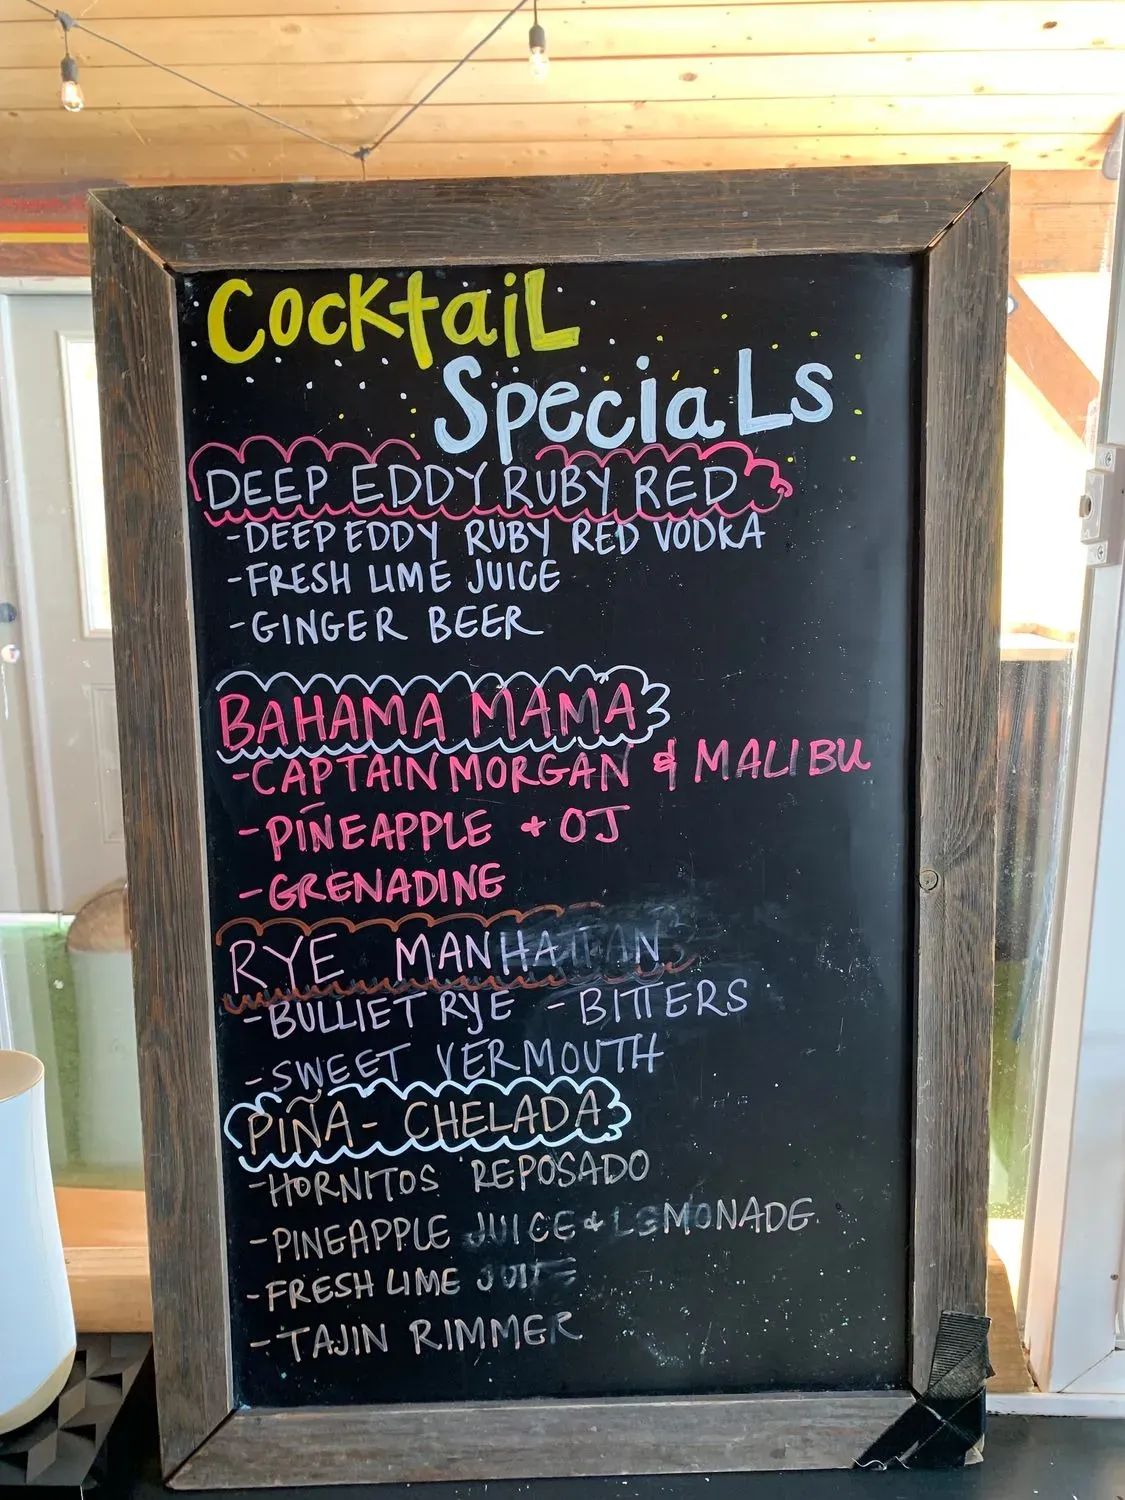 CocktaiL
SpeciaLs
DEEP EDDY RUBY RED
-DEEP EDDY RUBY RED VODKA
-FRESH LIME JUICE
-GINGER BEER
BAHAMA MAMA
-CAPTAIN MORGAN & MALIBU
-PINEAPPLE + OJ
-GRENADINE
RYE MANHATTAN
-BULLIET RYE -BITTERS
-SWEET VERMOUTH
PIÑA-CHELADA
-HORNITOS REPOSADO
-PINEAPPLE JUICE & LEMONADE
-FRESH LIME JUICE
-TAJIN RIMMER